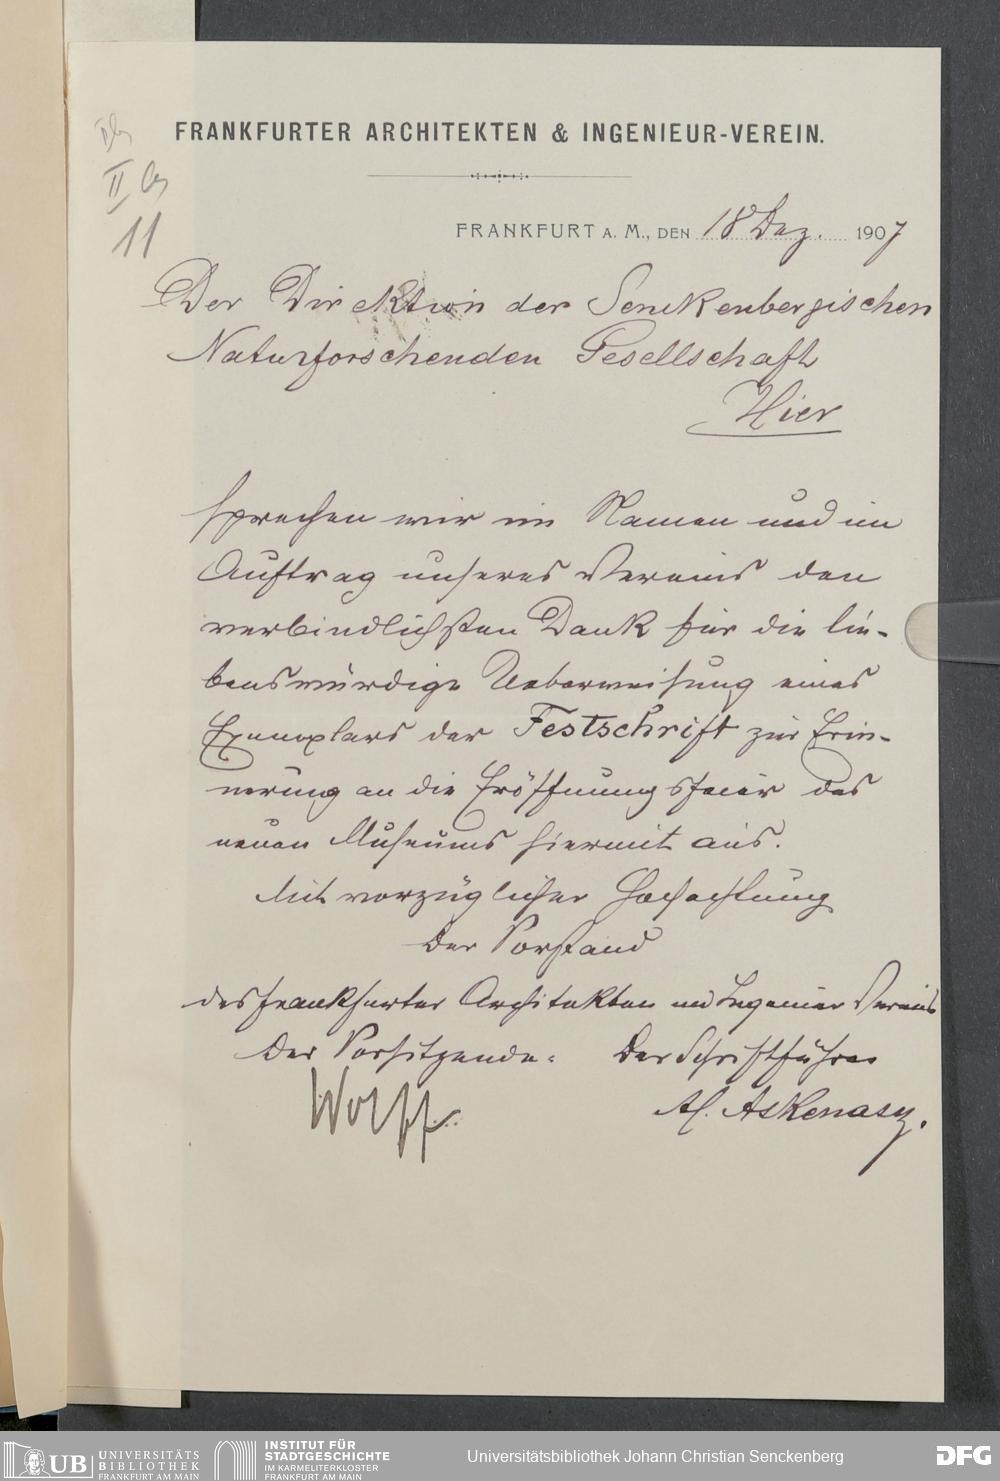 FRANKFURTER ARCHITEKTEN & INGENIEUR-VEREIN.
II
11
FRANKFURT A. M., DEN 18 Dez. 1907
Der Direktion der Senckenbergischen
Naturforschenden Gesellschaft
Hier
sprechen wir im Namen und im
Auftrag unseres Vereins den
verbindlichsten Dank für die lie-
benswürdige Ueberweisung eines
Exemplars der Festschrift zur Erin-
nerung an die Eröffnungsfeier des
neuen Museums hiermit aus.
Mit vorzüglicher Hochachtung
Der Vorstand
des Frankfurter Architekten und Ingenieur Vereins
Der Vorsitzende: Der Schriftführer
Wolff. A. Askenasy.
UB UNIVERSITÄTS
BIBLIOTHEK
FRANKFURT AM MAIN
INSTITUT FÜR
STADTGESCHICHTE
IM KARMELITERKLOSTER
FRANKFURT AM MAIN
Universitätsbibliothek Johann Christian Senckenberg
DFG